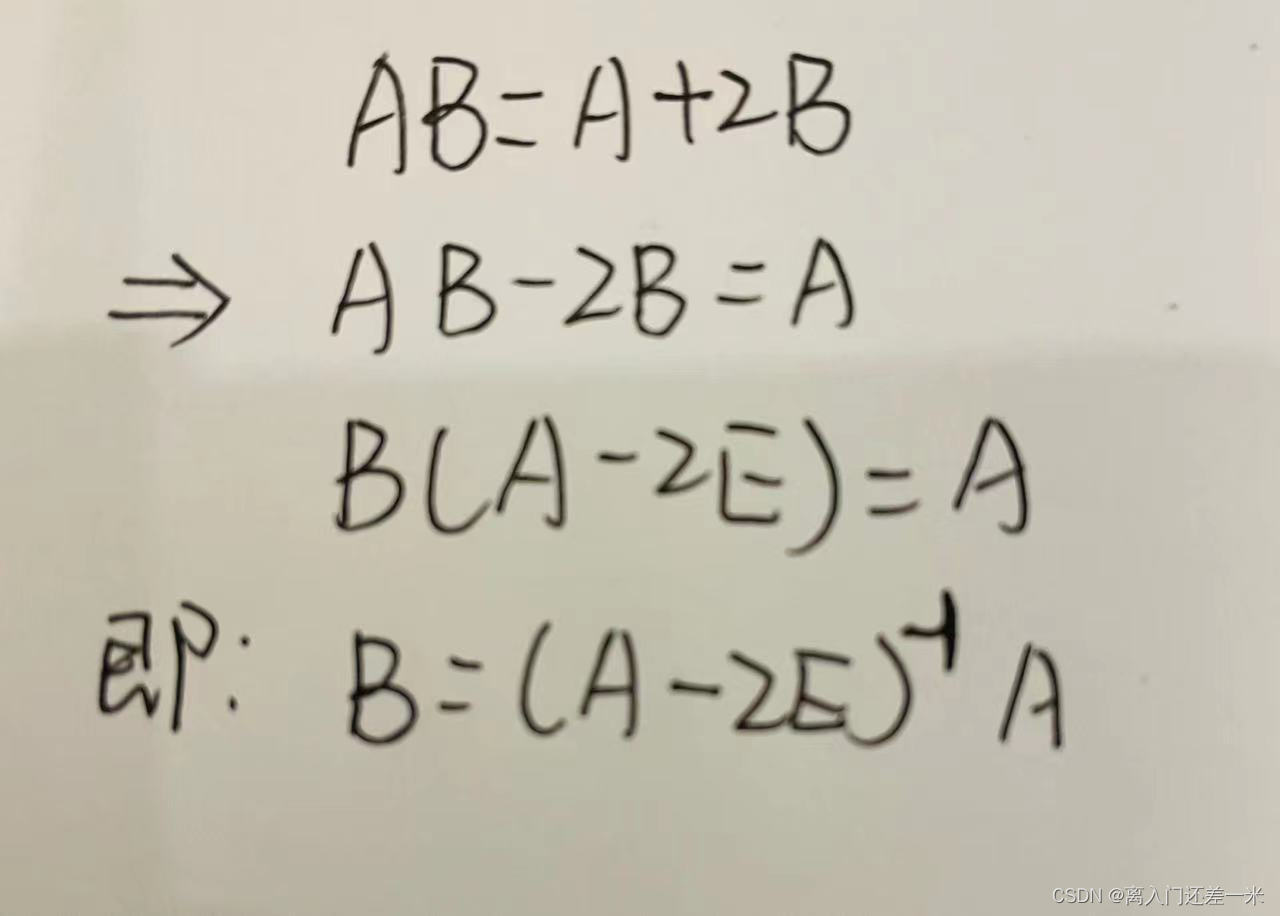 AB=A+2B
⇒ AB-2B=A
B(A-2E)=A
即: B=(A-2E)⁻¹A
CSDN @离入门还差一米